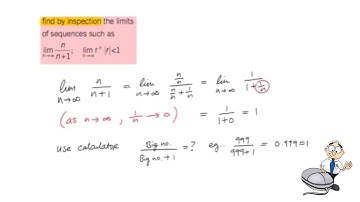 find by inspection the limits
of sequences such as
lim n→∞ n/n+1; lim n→∞ rⁿ |r|<1
lim n→∞ n/n+1 = lim n→∞ (n/n)/(n/n + 1/n) = lim n→∞ 1/(1+1/n)
(as n→∞, 1/n → 0) = 1/1+0 = 1
use calculator Big no./Big no.+1 =? eg.. 999/999+1 = 0.999≈1